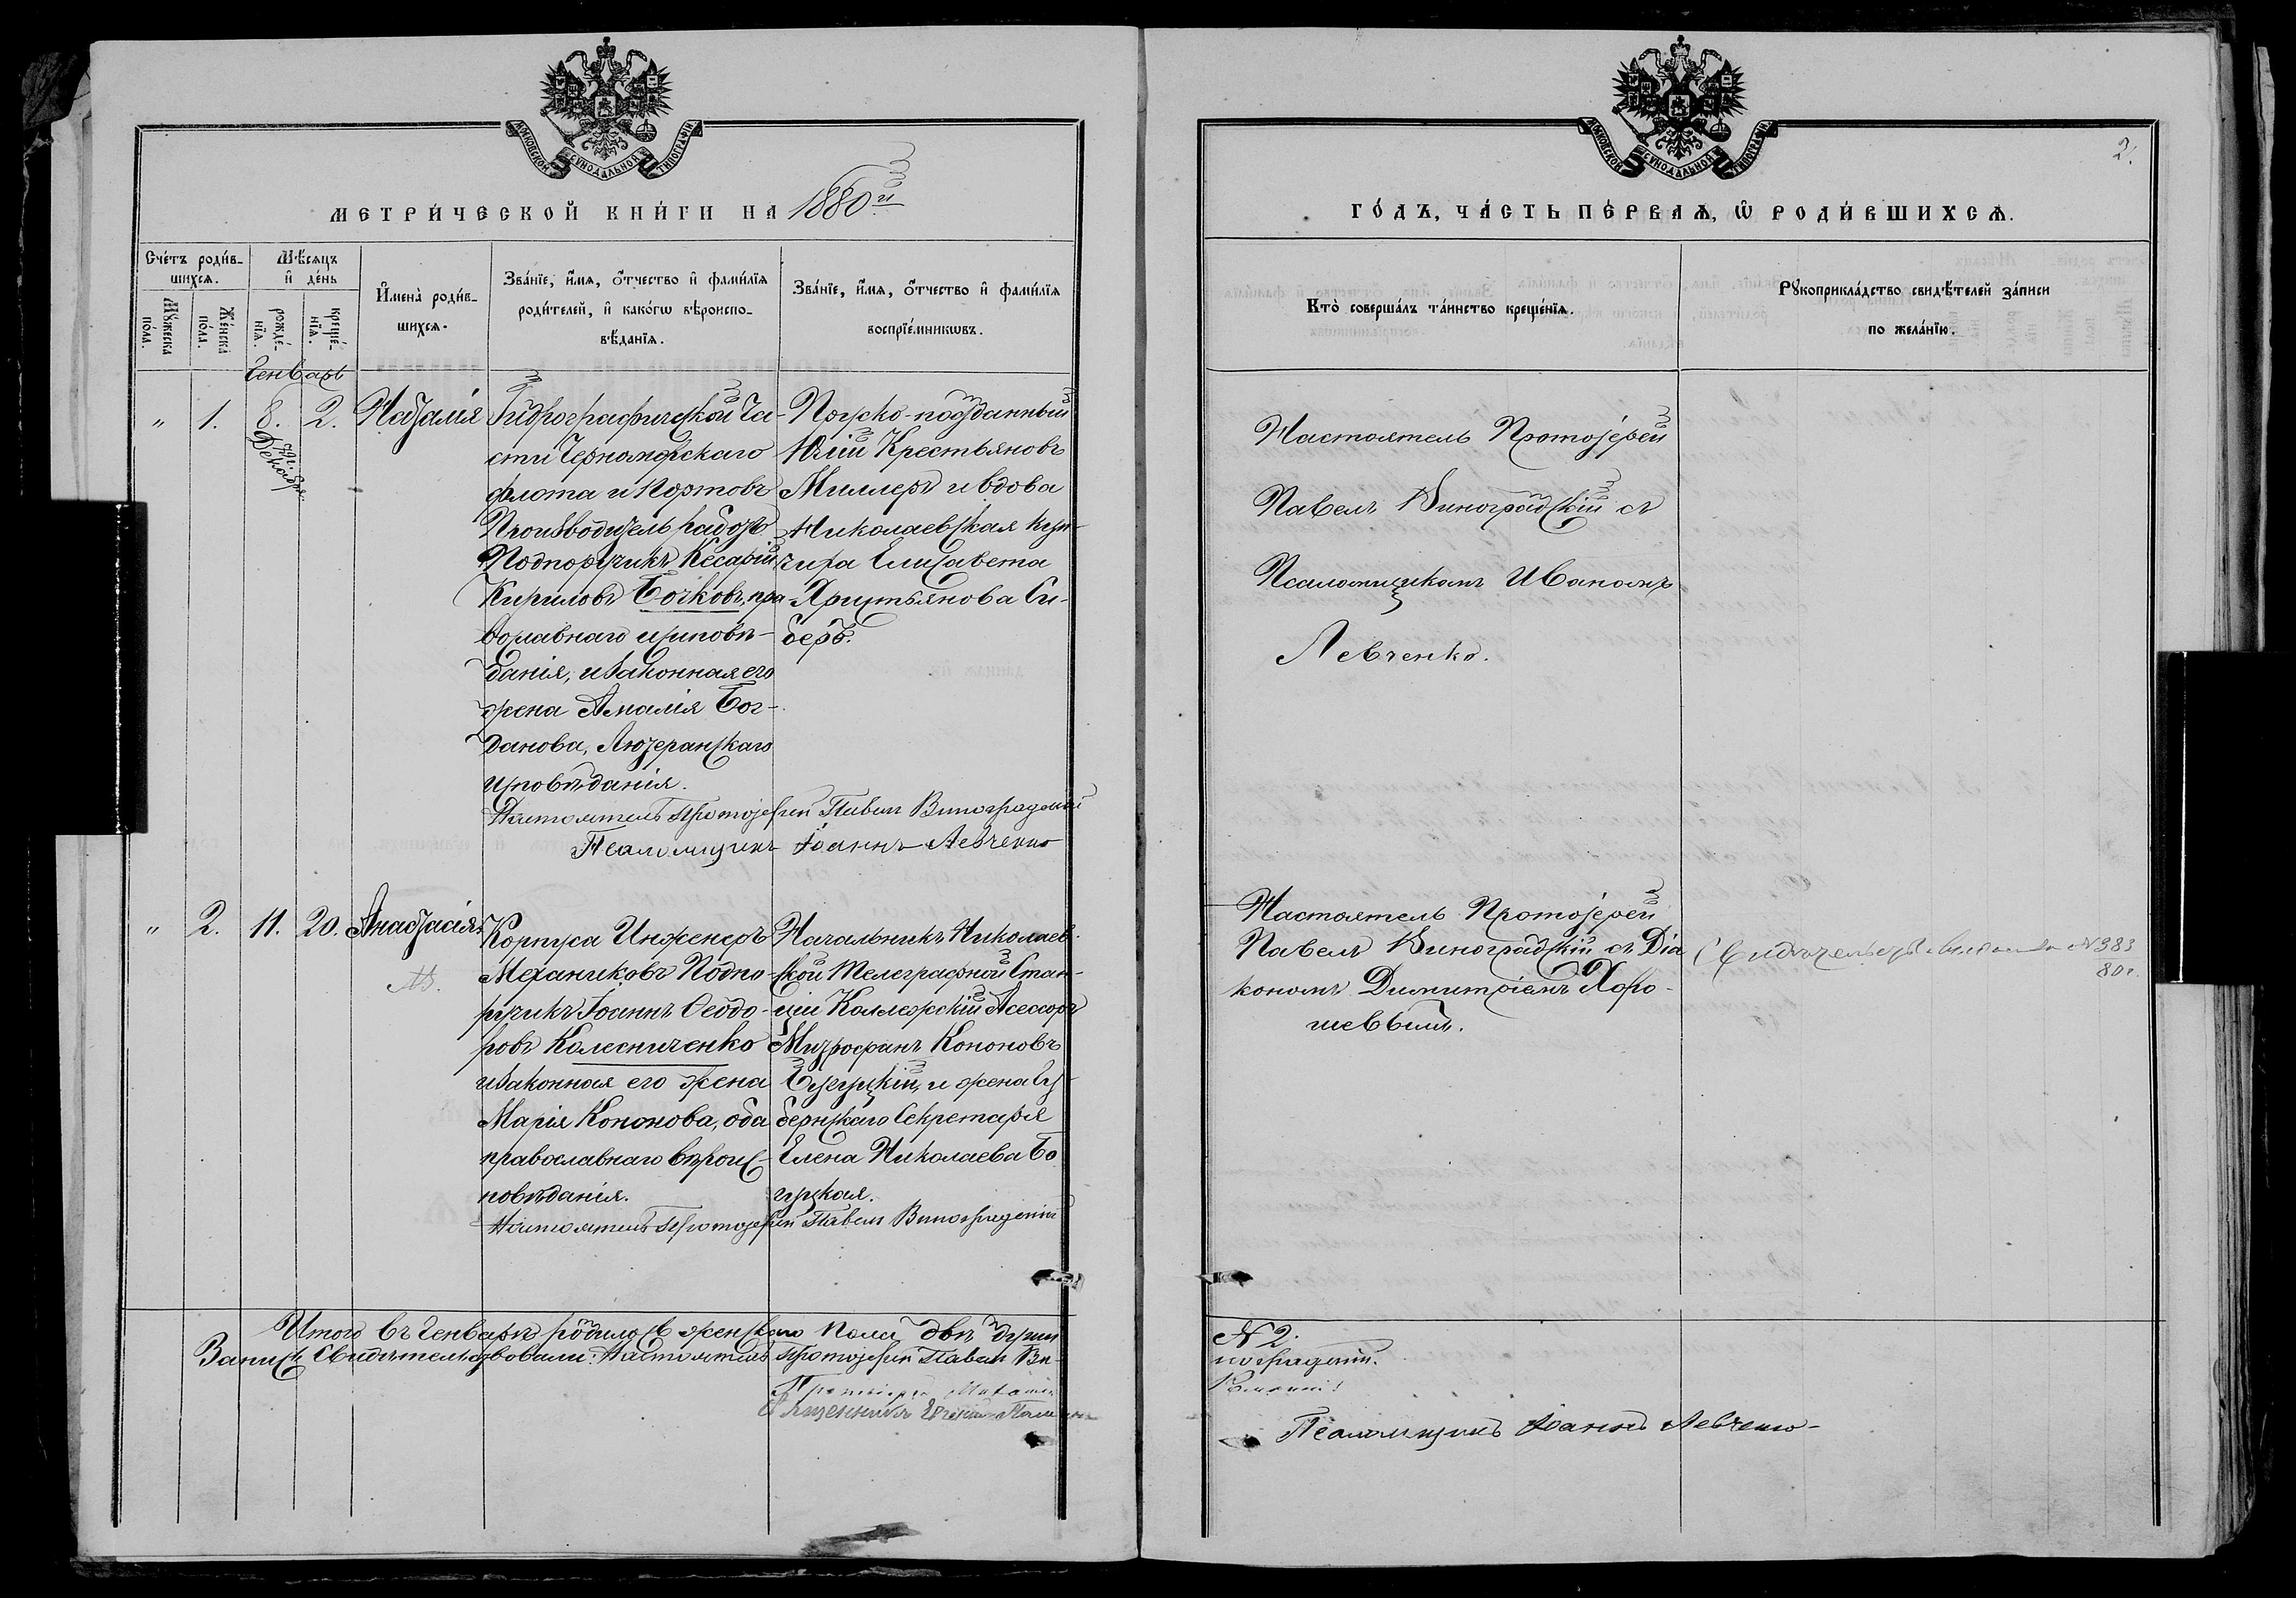 МОСКОВСКОЙ СѴНОДАЛЬНОЙ ТИПОГРАФІИ
МЕТРИ́ЧЕСКОЙ КНИ́ГИ НА 1880й
Сче́тъ роди́в-
шихсѧ.
Мѣ́сѧцъ
и҆ де́нь
Мꙋ́жеска
пола.
Же́нска
по́ла.
рожде́-
нїѧ.
креще́-
нїѧ.
И҆мена̀ роди́в-
шихсѧ.
Зва́нїе, и҆́мѧ, ѻ҆́тчество и҆ фами́лїѧ
роди́телей, и҆ како́гѡ вѣроиспо-
вѣ́данїѧ.
Зва́нїе, и҆́мѧ, ѻ҆́тчество и҆ фами́лїѧ
воспрїе́мникѡвъ.
Генварь
" 1. 8. 2. Наталія
79 г.
Декабря
Гидрографической Ча-
сти Черноморскаго
флота и Портовъ
Производитель работъ
Подпоручикъ Кесарій
Кириловъ Бочковъ, пра-
вославнаго исповѣ-
данія, и законная его
жена Амалія Бог-
данова, Лютеранскаго
исповѣданія.
Прусско-подданный
Юлій Крестьяновъ
Миллеръ и вдова
Николаевская куп-
чиха Елисавета
Христьянова Си-
беръ.
Настоятель Протоіерей Павелъ Виноградскій
Псаломщикъ Іоаннъ Левченко
" 2. 11. 20. Анастасія
Корпуса Инженеръ
Механиковъ Подпо-
ручикъ Іоаннъ Ѳеодо-
ровъ Колесниченко
и законная его жена
Марія Кононова, оба
православнаго вѣроис-
повѣданія.
Начальникъ Николаев-
ской Телеграфной Стан-
ціи Коллежскій Асессоръ
Митрофанъ Кононовъ
Богуцкій, и жена Гу-
бернскаго Секретаря
Елена Николаева Бо
гуцкая.
Настоятель Протоіерей Павелъ Виноградскій
Итого въ Генварѣ родилось женскаго пола двѣ души
Запись Свидѣтельствовали: Настоятель Протоіерей Павелъ Ви-
Протоіерей
Священникъ
2.
ГО́ДЪ, ЧА́СТЬ ПЕ́РВАѦ, Ѡ҆ РОДИ́ВШИХСѦ.
Кто̀ соверша́лъ та́инство креще́нїѧ.
Рꙋкоприкла́дство свидѣ́телей за́писи
по жела́нїю.
Настоятель Протоіерей
Павелъ Виноградскій съ
Псаломщикомъ Иваномъ
Левченко.
Настоятель Протоіерей
Павелъ Виноградскій съ Діа
кономъ Димитріемъ Хоро-
шевымъ.
Свидѣтельство выдано № 383
80 г.
№ 2.
ноградскій.
Псаломщикъ Іоаннъ Левченко